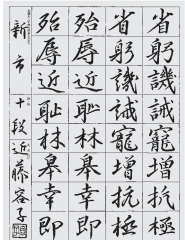 省躬譏誡寵增抗極
省躬譏誡寵增抗極
殆辱近耻林皐幸即
殆辱近耻林皐幸即
新市 十段 近藤容子